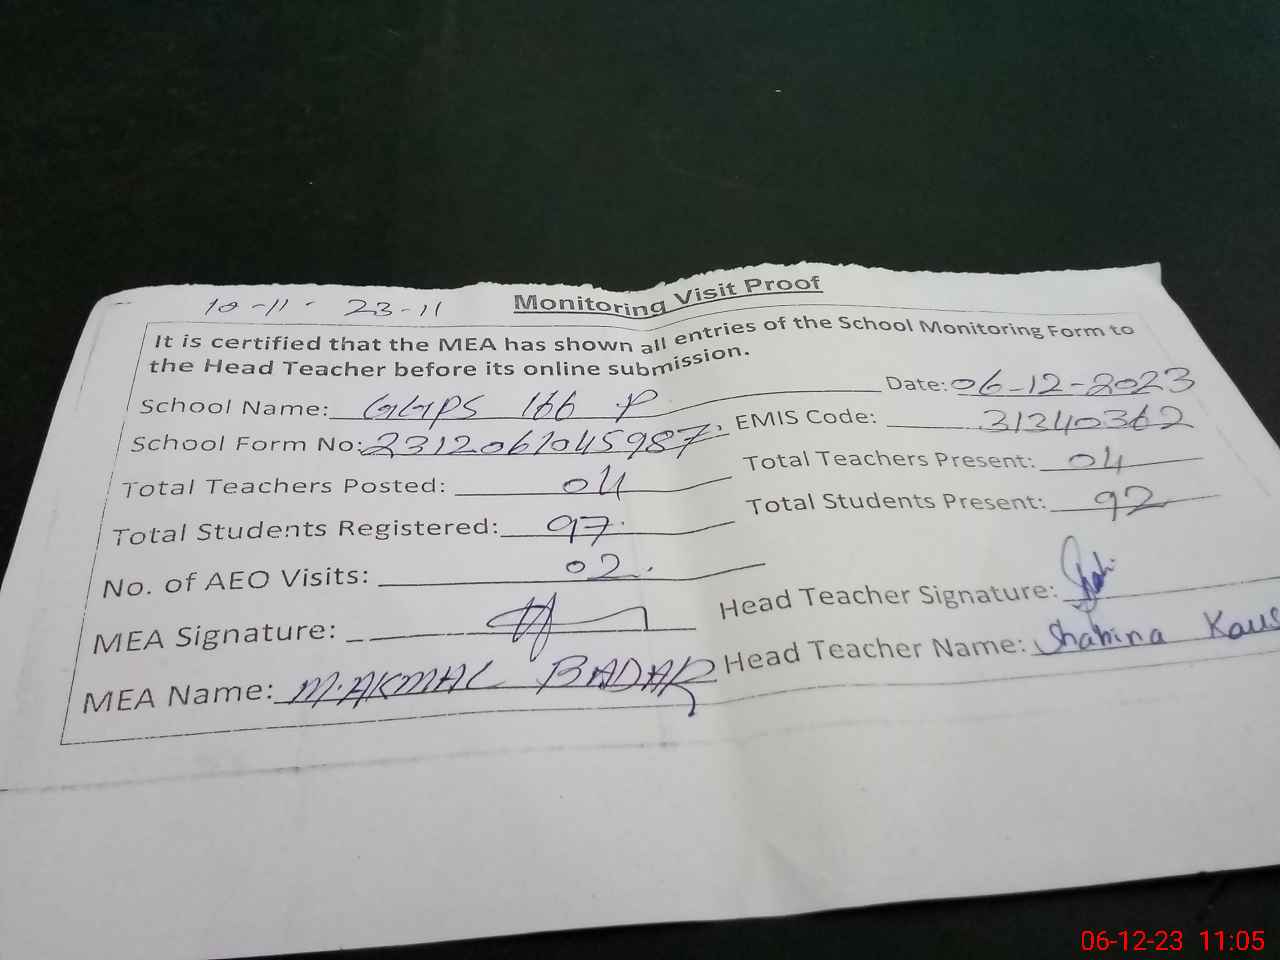 10-11- 23-11
Monitoring Visit Proof
It is certified that the MEA has shown all entries of the School Monitoring Form to
the Head Teacher before its online submission.
School Name: GGPS 166 P Date: 06-12-2023
School Form No: 2312061045987 EMIS Code: 31340362
Total Teachers Posted: 04 Total Teachers Present: 04
Total Students Registered: 97 Total Students Present: 92
No. of AEO Visits: 02
MEA Signature: Head Teacher Signature:
MEA Name: M.AKMAL BADAR Head Teacher Name: Shahina
06-12-23 11:05